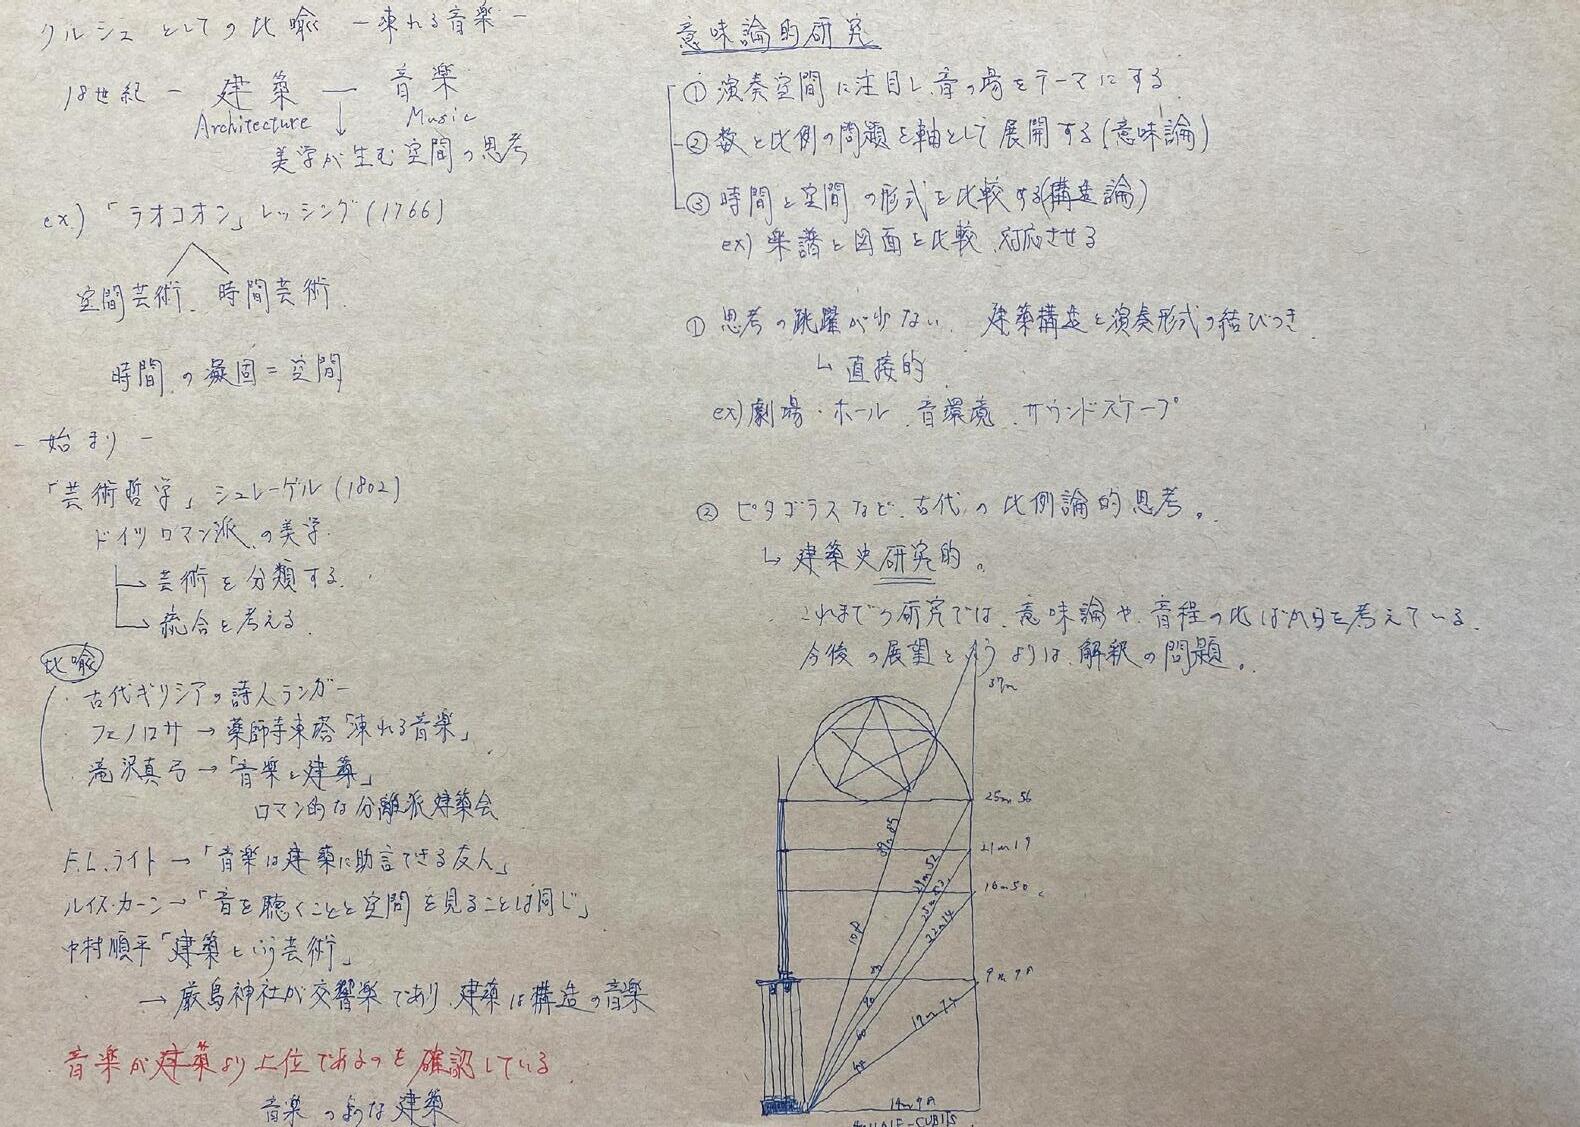 クルシュとしての比喩 ー凍れる音楽ー
18世紀 ー 建築 ー 音楽
Architecture Music
美学が生む空間の思考
ex) 「ラオコオン」レッシング(1766)
空間芸術、時間芸術
時間の凝固=空間
ー始まりー
「芸術哲学」シュレーゲル(1802)
ドイツロマン派の美学
→芸術を分類する
→統合を考える
比喩
・古代ギリシアの詩人ランガー
・フェノロサ→薬師寺東塔「凍れる音楽」
・滝沢真弓→「音楽と建築」
ロマン的な分離派建築会
F.L.ライト→「音楽は建築に助言できる友人」
ルイス・カーン→「音を聴くことと空間を見ることは同じ」
中村順平「建築という芸術」
→厳島神社が交響楽であり、建築は構造の音楽
音楽が建築より上位であるのを確認している
音楽のような建築
意味論的研究
①演奏空間に注目し、音の場をテーマにする
②数と比例の問題を軸として展開する(意味論)
③時間と空間の形式を比較する(構造論)
ex) 楽譜と図面を比較、対応させる
①思考の跳躍が少ない、建築構造と演奏形式の結びつき
↳直接的
ex)劇場・ホール、音環境、サウンドスケープ
②ピタゴラスなど、古代の比例論的思考。
↳建築史研究的。
これまでの研究では、意味論や、音程の比ばかりを考えている。
今後の展望というよりは、解釈の問題。
37m
25m56
21m19
16m50
22m14
17m74